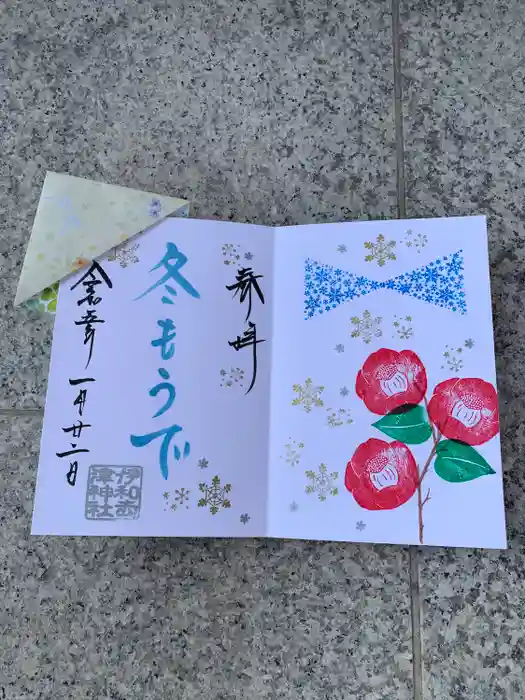 奉拝
冬もうで
令和六年 一月廿二日
伊和志
津神社